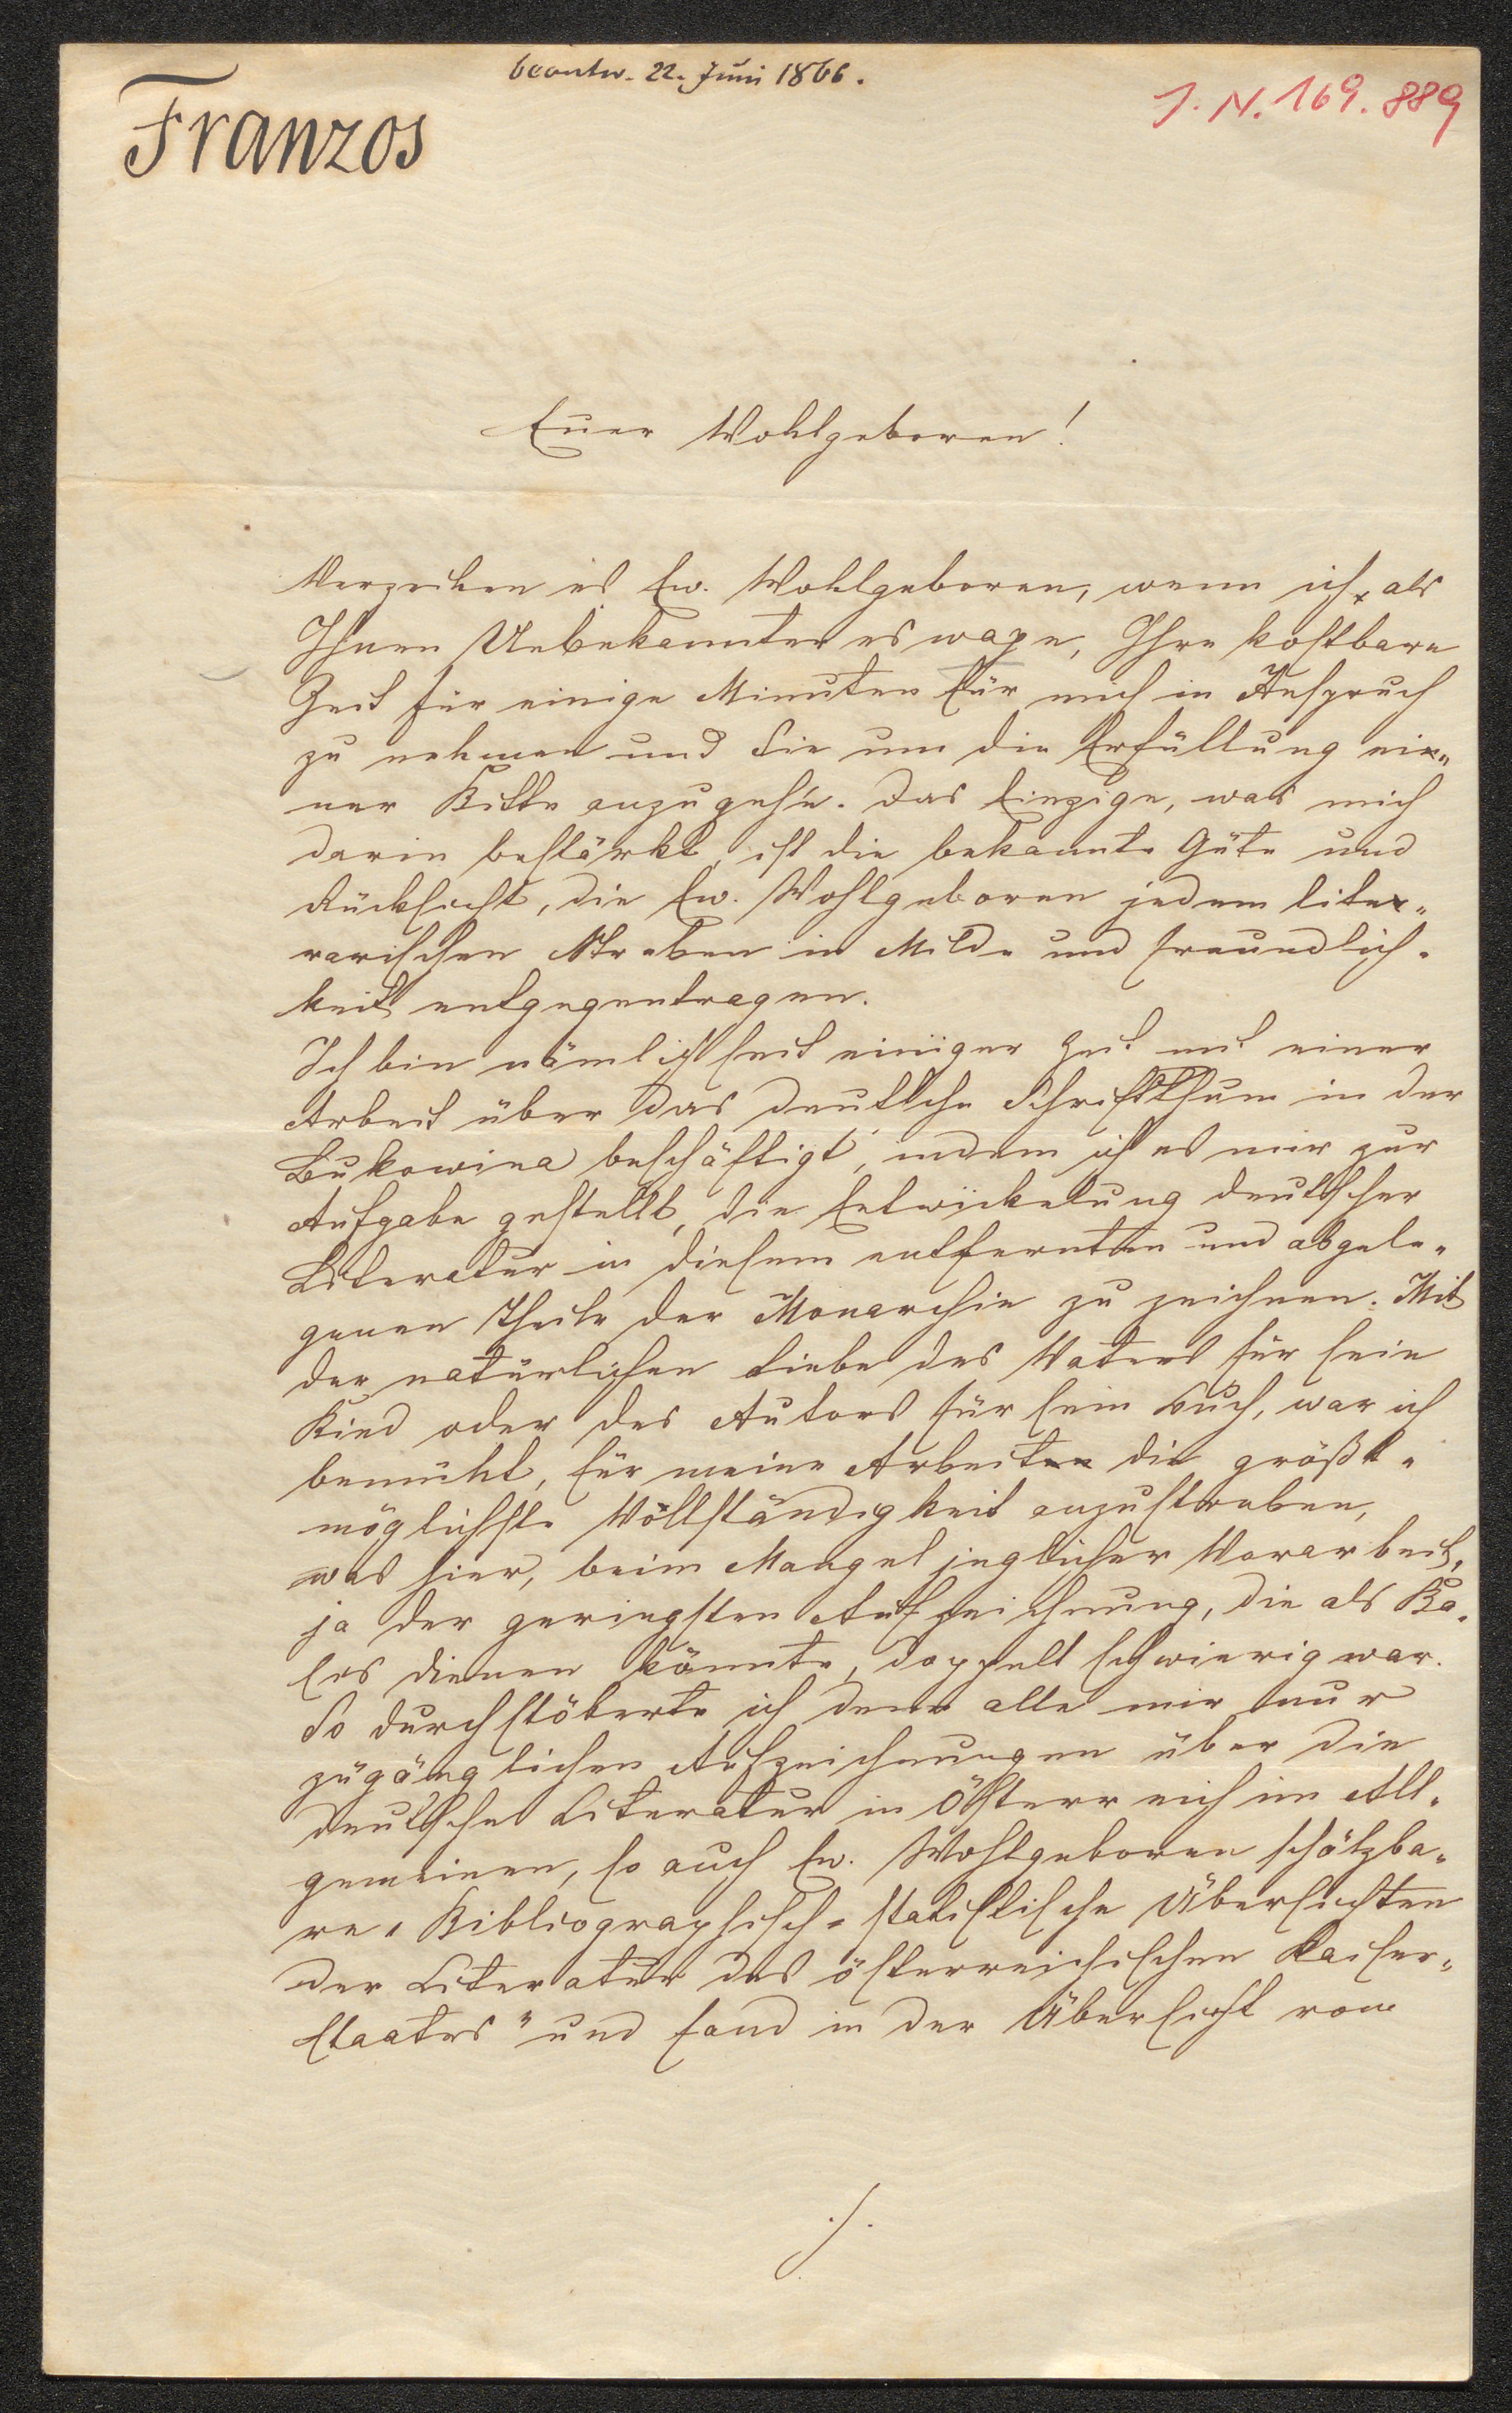 beantw. 22. Juni 1866.
J. N. 169.889
Franzos
Euer Wohlgeboren!
Verzeihen es Ew. Wohlgeboren, wenn ich als
Ihnen Unbekannter es wage, Ihre kostbare
Zeit für einige Minuten für mich in Anspruch
zu nehmen und Sie um die Erfüllung ei„
ner Bitte anzugeh'n. Das Einzige, was mich
darin bestärkt, ist die bekannte Güte und
Rücksicht, die Ew. Wohlgeboren jedem lite„
rarischen Streben in Milde und Freundlich„
keit entgegentragen.
Ich bin nämlich seit einiger Zeit mit einer
Arbeit über das deutsche Schriftthum in der
Bukowina beschäftigt, indem ich es mir zur
Aufgabe gestellt, die Entwickelung deutscher
Literatur in diesem entfernten und abgele„
genen Theile der Monarchie zu zeichnen. Mit
der natürlichen Liebe des Vaters für sein
Kind oder des Autors für sein Buch, war ich
bemüht, für meine Arbeiten die größt„
möglichste Vollständigkeit anzustreben,
was hier, beim Mangel jeglicher Vorarbeit,
ja der geringsten Aufzeichnung, die als Ba„
sis dienen könnte, doppelt schwierig war.
So durchstöberte ich denn alle mir nur
zugänglichen Aufzeichnungen über die
deutsche Literatur in Österreich im All„
gemeinen, so auch Ew. Wohlgeboren schätzba„
re „Bibliographisch-statistische Übersichten
der Literatur des österreichischen Kaiser„
staates" und fand in der Übersicht vom
./.